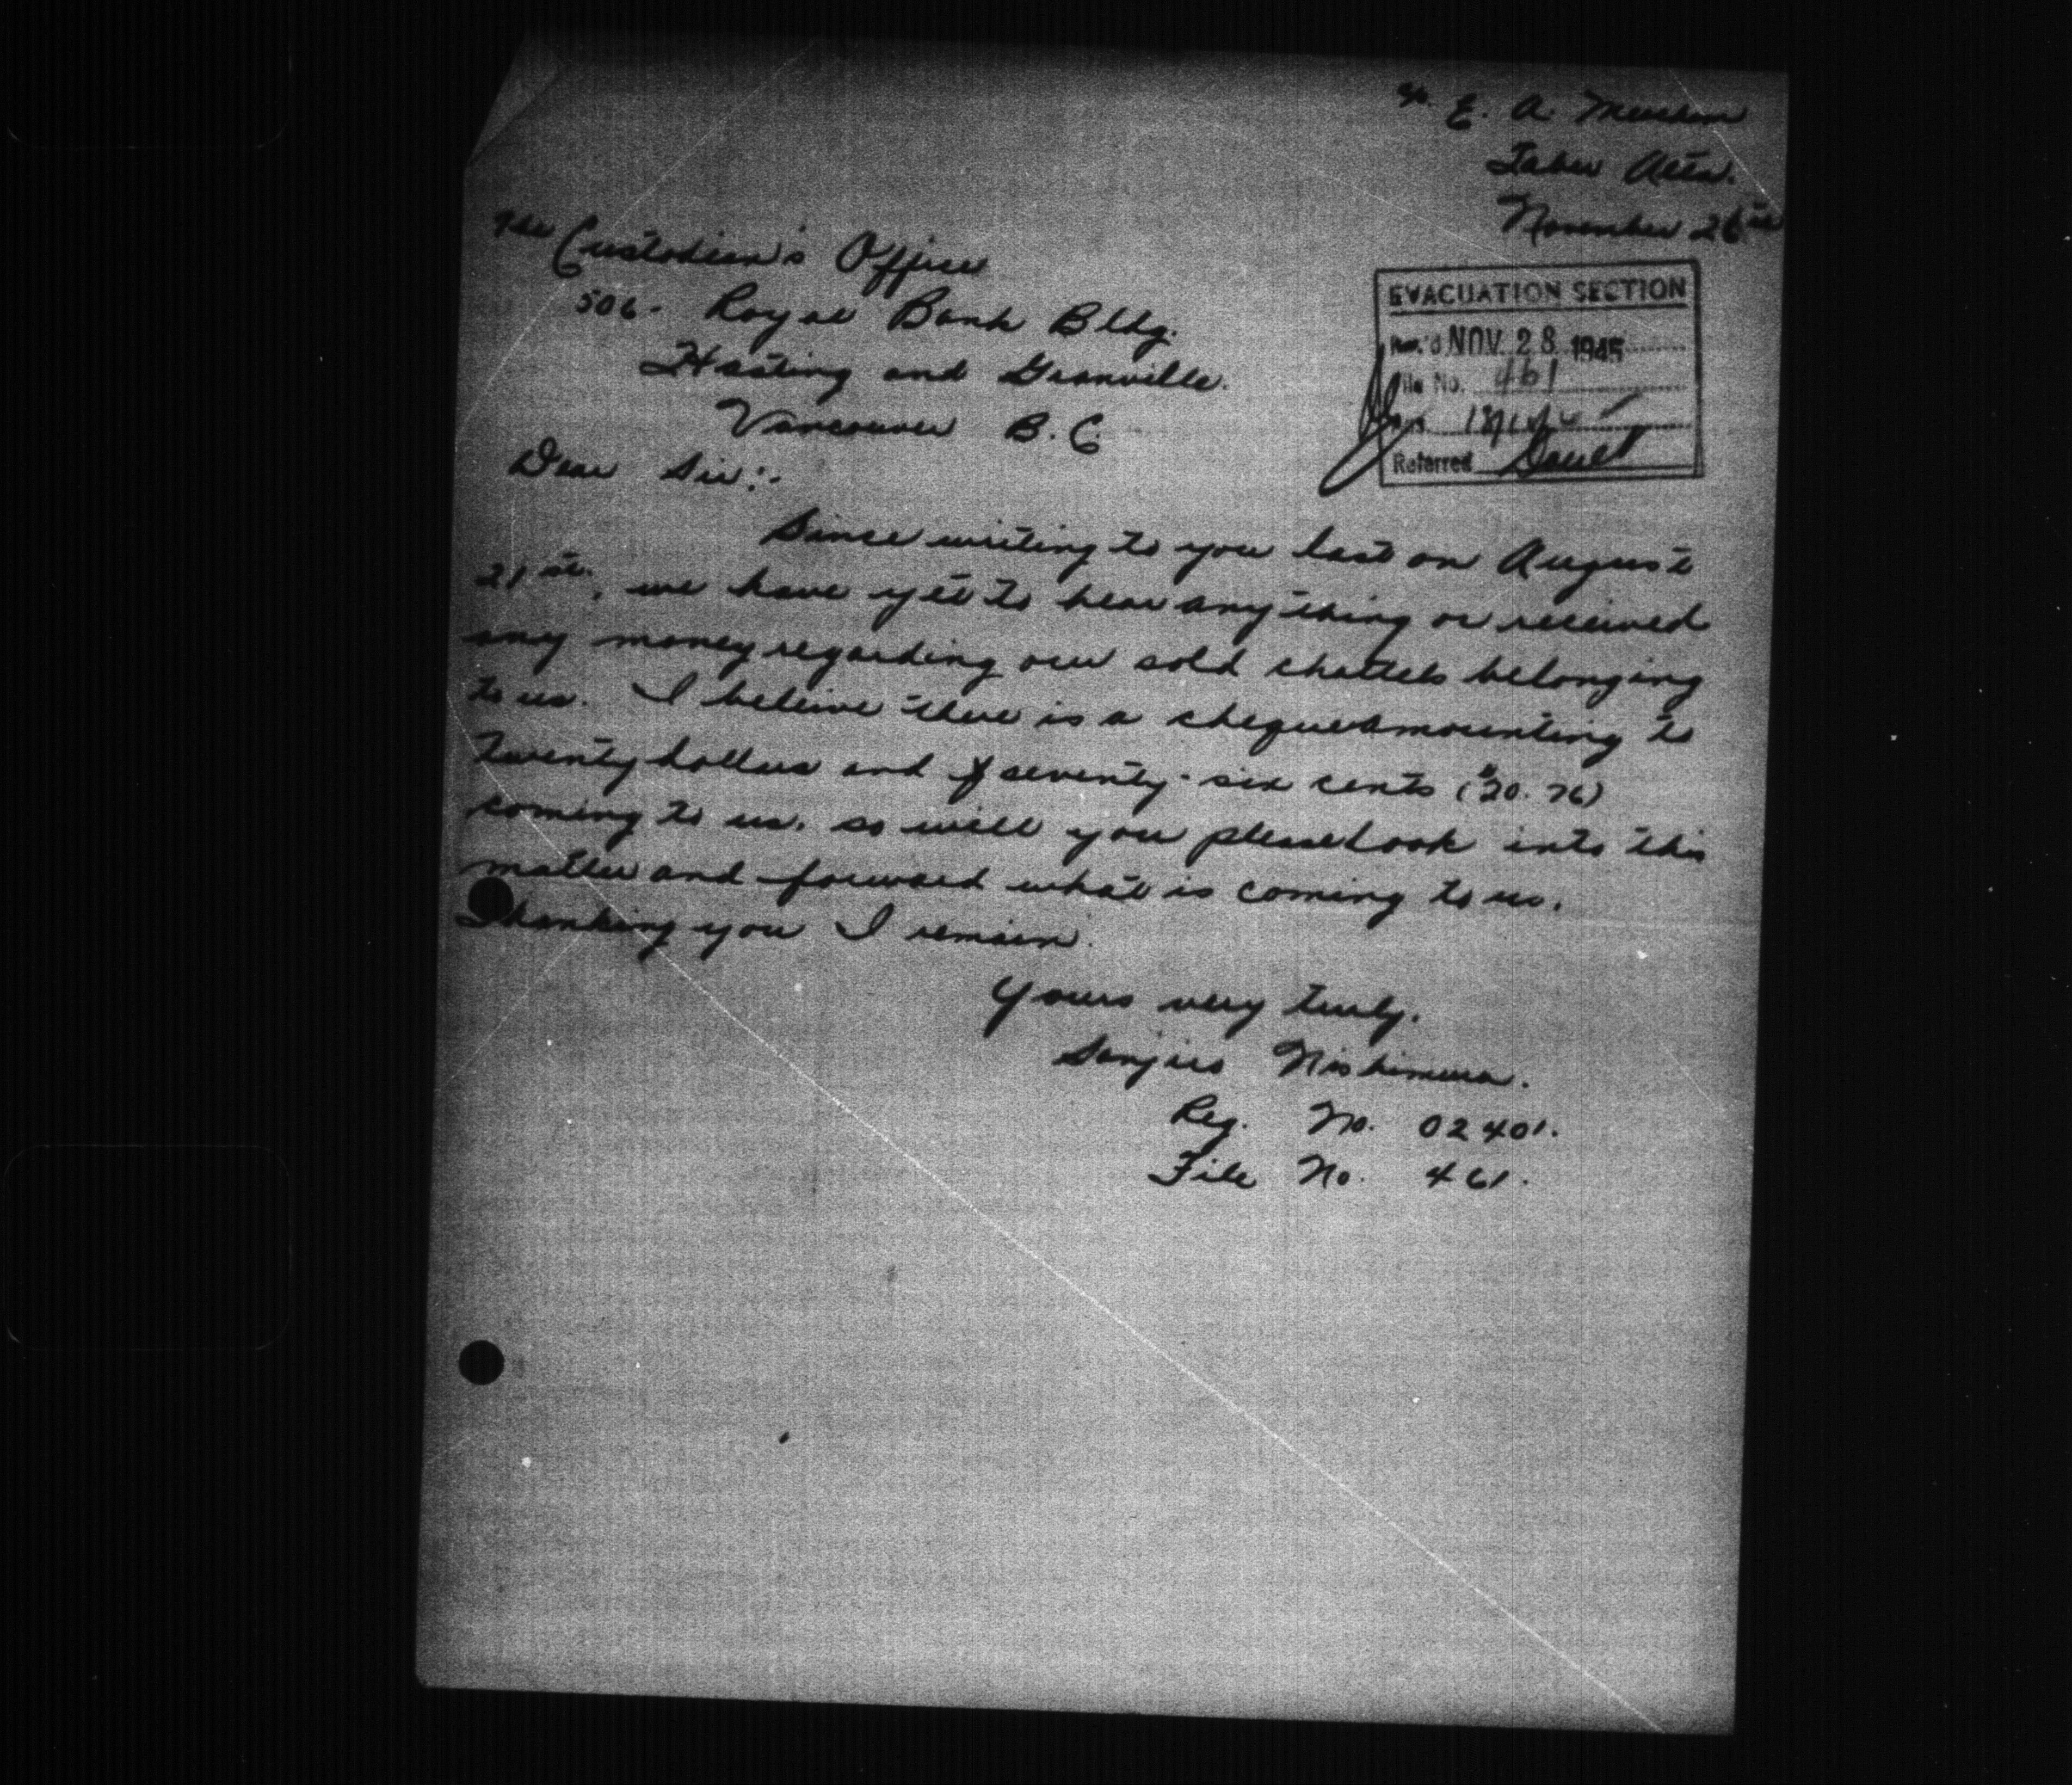 c/o. E. A. Meecham
Taber Alta.
November 26th
The Custodian's Office
506 - Royal Bank Bldg.
Hasting and Granville.
Vancouver B.C.
EVACUATION SECTION
Rec.'d NOV 28 1945
File No. 461
Referred
Dear Sir:-
Since writing to you last on August
21st., we have yet to hear anything or received
any money regarding our sold chattels belonging
to us. I beleive there is a cheque amounting to
twenty dollars and seventy-six cents ($20.76)
coming to us. so will you please look into this
matter and forward what is coming to us.
Thanking you I remain.
Yours very truly.
Sanjiro Nishimura.
Reg. No. 02401.
File No. 461.